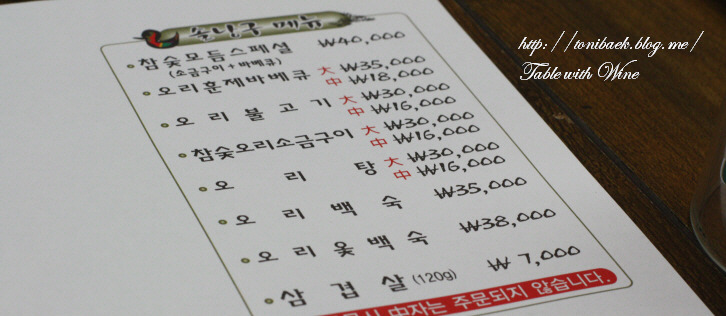 숯난구 메뉴
참숯모듬스페셜 ₩40,000
(소금구이+바베큐)
오리훈제바베큐 大 ₩35,000
中 ₩18,000
오리불고기 大 ₩30,000
中 ₩16,000
참숯오리소금구이 大 ₩30,000
中 ₩16,000
오리탕 大 ₩30,000
中 ₩16,000
오리백숙 ₩35,000
오리옻백숙 ₩38,000
삼겹살 (120g) ₩7,000
中자는 주문되지 않습니다.
http://tonibaek.blog.me/
Table with Wine